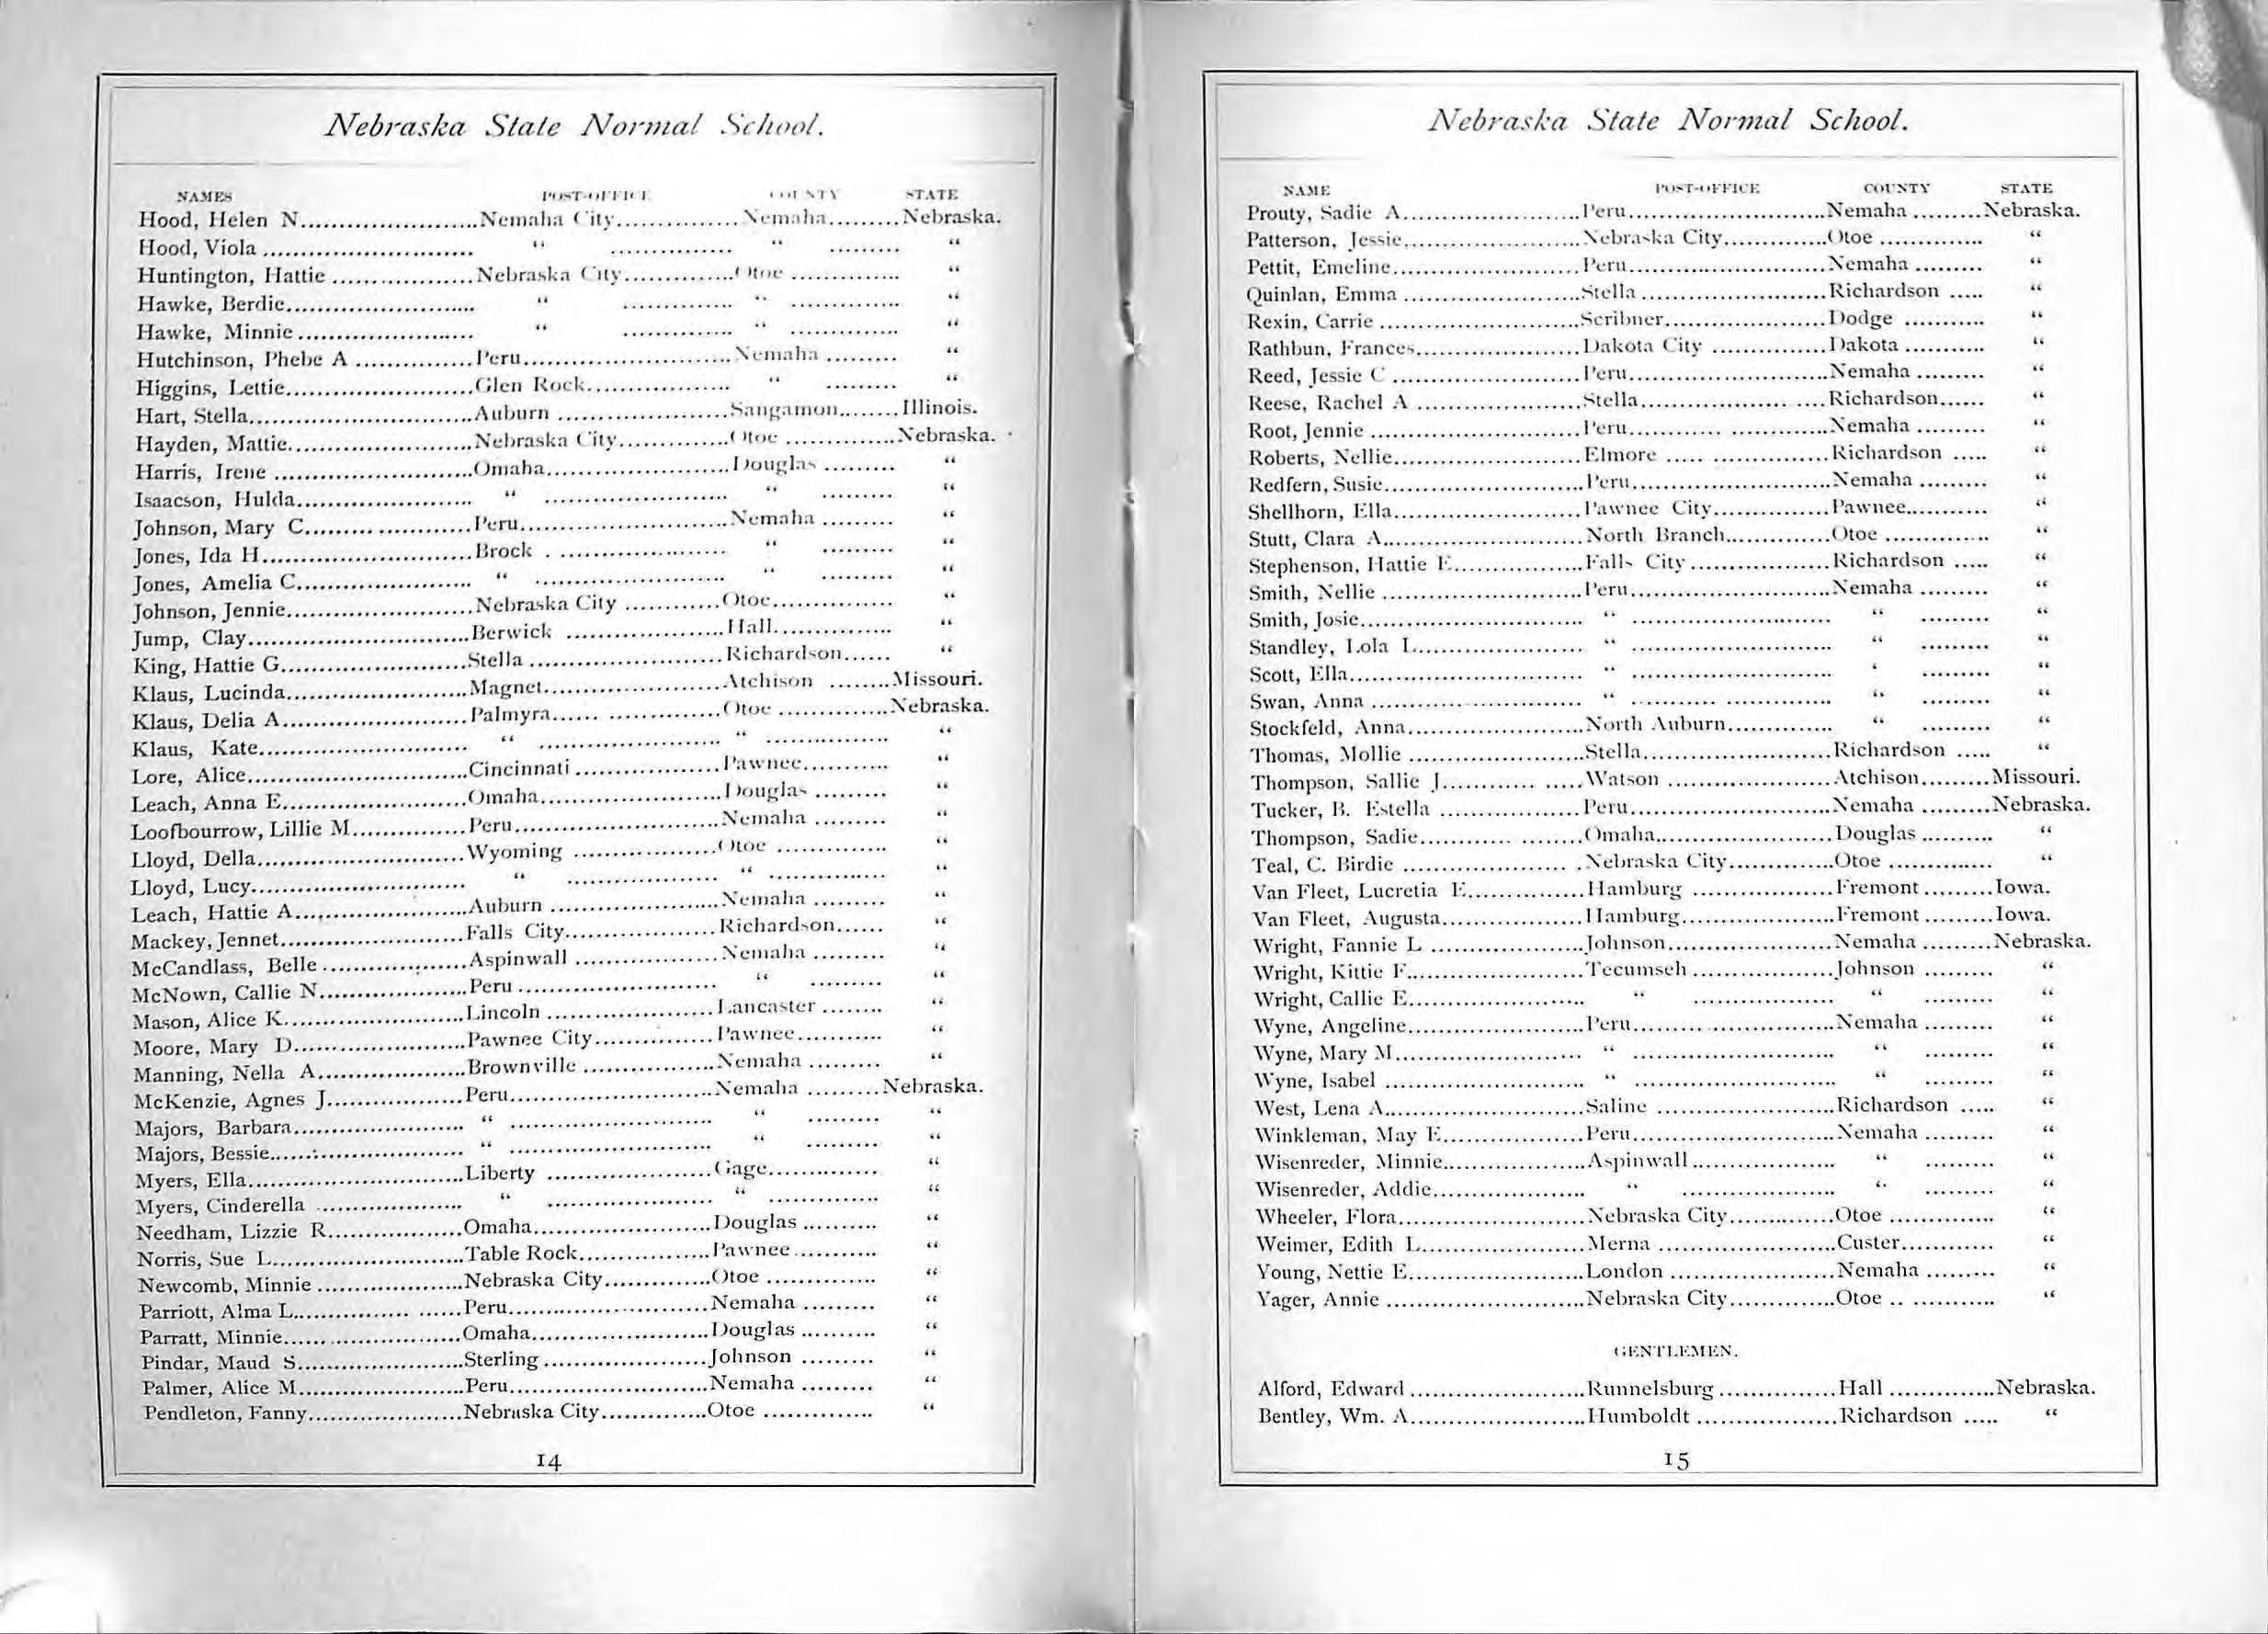 Nebraska State Normal School.
NAMES POST-OFFICE COUNTY STATE
Hood, Helen N........................Nemaha City................Nemaha.........Nebraska.
Hood, Viola ........................... “ ................ “ ......... “
Huntington, Hattie ...................Nebraska City..............Otoe .............. “
Hawke, Berdie......................... “ .............. “ .............. “
Hawke, Minnie........................ “ .............. “ .............. “
Hutchinson, Phebe A ................Peru............................Nemaha ......... “
Higgins, Lettie.........................Glen Rock................... “ ......... “
Hart, Stella..............................Auburn .......................Sangamon........Illinois.
Hayden, Mattie.........................Nebraska City...............Otoe ...............Nebraska.
Harris, Irene ...........................Omaha.........................Douglas ......... “
Isaacson, Hulda........................ “ ......................... “ ......... “
Johnson, Mary C.......................Peru............................Nemaha ......... “
Jones, Ida H............................Brock . ...................... “ ......... “
Jones, Amelia C........................ “ ......................... “ ......... “
Johnson, Jennie.........................Nebraska City .............Otoe................ “
Jump, Clay..............................Berwick .....................Hall................ “
King, Hattie G.........................Stella ..........................Richardson...... “
Klaus, Lucinda.........................Magnet........................Atchison ........Missouri.
Klaus, Delia A.........................Palmyra...... ...............Otoe ...............Nebraska.
Klaus, Kate............................ “ ........................ “ ................ “
Lore, Alice..............................Cincinnati ...................Pawnee............ “
Leach, Anna E.........................Omaha.........................Douglas .......... “
Loofbourrow, Lillie M...............Peru............................Nemaha .......... “
Lloyd, Della............................Wyoming ...................Otoe ............... “
Lloyd, Lucy............................. “ .................... “ ................ “
Leach, Hattie A........................Auburn .......................Nemaha .......... “
Mackey, Jennet.........................Falls City....................Richardson...... “
McCandlass, Belle....................Aspinwall ...................Nemaha .......... “
McNown, Callie N....................Peru........................... “ .......... “
Mason, Alice K........................Lincoln .......................Lancaster ........ “
Moore, Mary D.......................Pawnee City................Pawnee............ “
Manning, Nella A....................Brownville ..................Nemaha .......... “
McKenzie, Agnes J...................Peru............................Nemaha ..........Nebraska.
Majors, Barbara....................... “ ........................... “ .......... “
Majors, Bessie.......................... “ ........................... “ .......... “
Myers, Ella..............................Liberty .......................Gage............... “
Myers, Cinderella .................... “ ....................... “ ............... “
Needham, Lizzie R...................Omaha........................Douglas .......... “
Norris, Sue L...........................Table Rock..................Pawnee............ “
Newcomb, Minnie ....................Nebraska City..............Otoe ............... “
Parriott, Alma L................ ......Peru...........................Nemaha .......... “
Parratt, Minnie........................Omaha........................Douglas .......... “
Pindar, Maud S.......................Sterling ......................Johnson .......... “
Palmer, Alice M.......................Peru...........................Nemaha .......... “
Pendleton, Fanny.....................Nebraska City..............Otoe ............... “
14
Nebraska State Normal School.
NAME POST-OFFICE COUNTY STATE
Prouty, Sadie A........................Peru...........................Nemaha .........Nebraska.
Patterson, Jessie........................Nebraska City..............Otoe .............. “
Pettit, Emeline.........................Peru...........................Nemaha ......... “
Quinlan, Emma ........................Stella .........................Richardson ..... “
Rexin, Carrie ...........................Scribner......................Dodge ........... “
Rathbun, Frances......................Dakota City ................Dakota ........... “
Reed, Jessie C ..........................Peru...........................Nemaha ......... “
Reese, Rachel A .......................Stella.................... ....Richardson...... “
Root, Jennie ............................Peru............ .............Nemaha ......... “
Roberts, Nellie..........................Elmore ..... ................Richardson ..... “
Redfern, Susie...........................Peru...........................Nemaha ......... “
Shellhorn, Ella..........................Pawnee City................Pawnee........... “
Stutt, Clara A...........................North Branch..............Otoe .............. “
Stephenson, Hattie E..................Falls City ...................Richardson ..... “
Smith, Nellie ...........................Peru...........................Nemaha ......... “
Smith, Josie.............................. “ ........................... “ ......... “
Standley, Lola L....................... “ ........................... “ ......... “
Scott, Ella................................ “ ........................... ‘ ......... “
Swan, Anna ............................. “ ........... .............. “ ......... “
Stockfeld, Anna........................North Auburn.............. “ ......... “
Thomas, Mollie ........................Stella..........................Richardson ..... “
Thompson, Sallie J............. .....Watson ......................Atchison.........Missouri.
Tucker, B. Estella ...................Peru...........................Nemaha .........Nebraska.
Thompson, Sadie............. ........Omaha........................Douglas .......... “
Teal, C. Birdie ...................... .Nebraska City..............Otoe .............. “
Van Fleet, Lucretia E................Hamburg ...................Fremont .........Iowa.
Van Fleet, Augusta...................Hamburg.....................Fremont .........Iowa.
Wright, Fannie L .....................Johnson......................Nemaha .........Nebraska.
Wright, Kittie F........................Tecumseh ...................Johnson ......... “
Wright, Callie E........................ “ ................... “ ......... “
Wyne, Angeline........................Peru...........................Nemaha ......... “
Wyne, Mary M......................... “ ........................... “ ......... “
Wyne, Isabel ........................... “ ........................... “ ......... “
West, Lena A...........................Saline ........................Richardson ..... “
Winkleman, May E...................Peru...........................Nemaha ......... “
Wisenreder, Minnie...................Aspinwall .................... “ ......... “
Wisenreder, Addie..................... “ ..................... “ ......... “
Wheeler, Flora..........................Nebraska City..............Otoe .............. “
Weimer, Edith L......................Merna ........................Custer............ “
Young, Nettie E........................London ......................Nemaha ......... “
Yager, Annie ...........................Nebraska City..............Otoe .. ........... “
GENTLEMEN.
Alford, Edward ........................Runnelsburg ................Hall ..............Nebraska.
Bentley, Wm. A........................Humboldt ...................Richardson ..... “
15